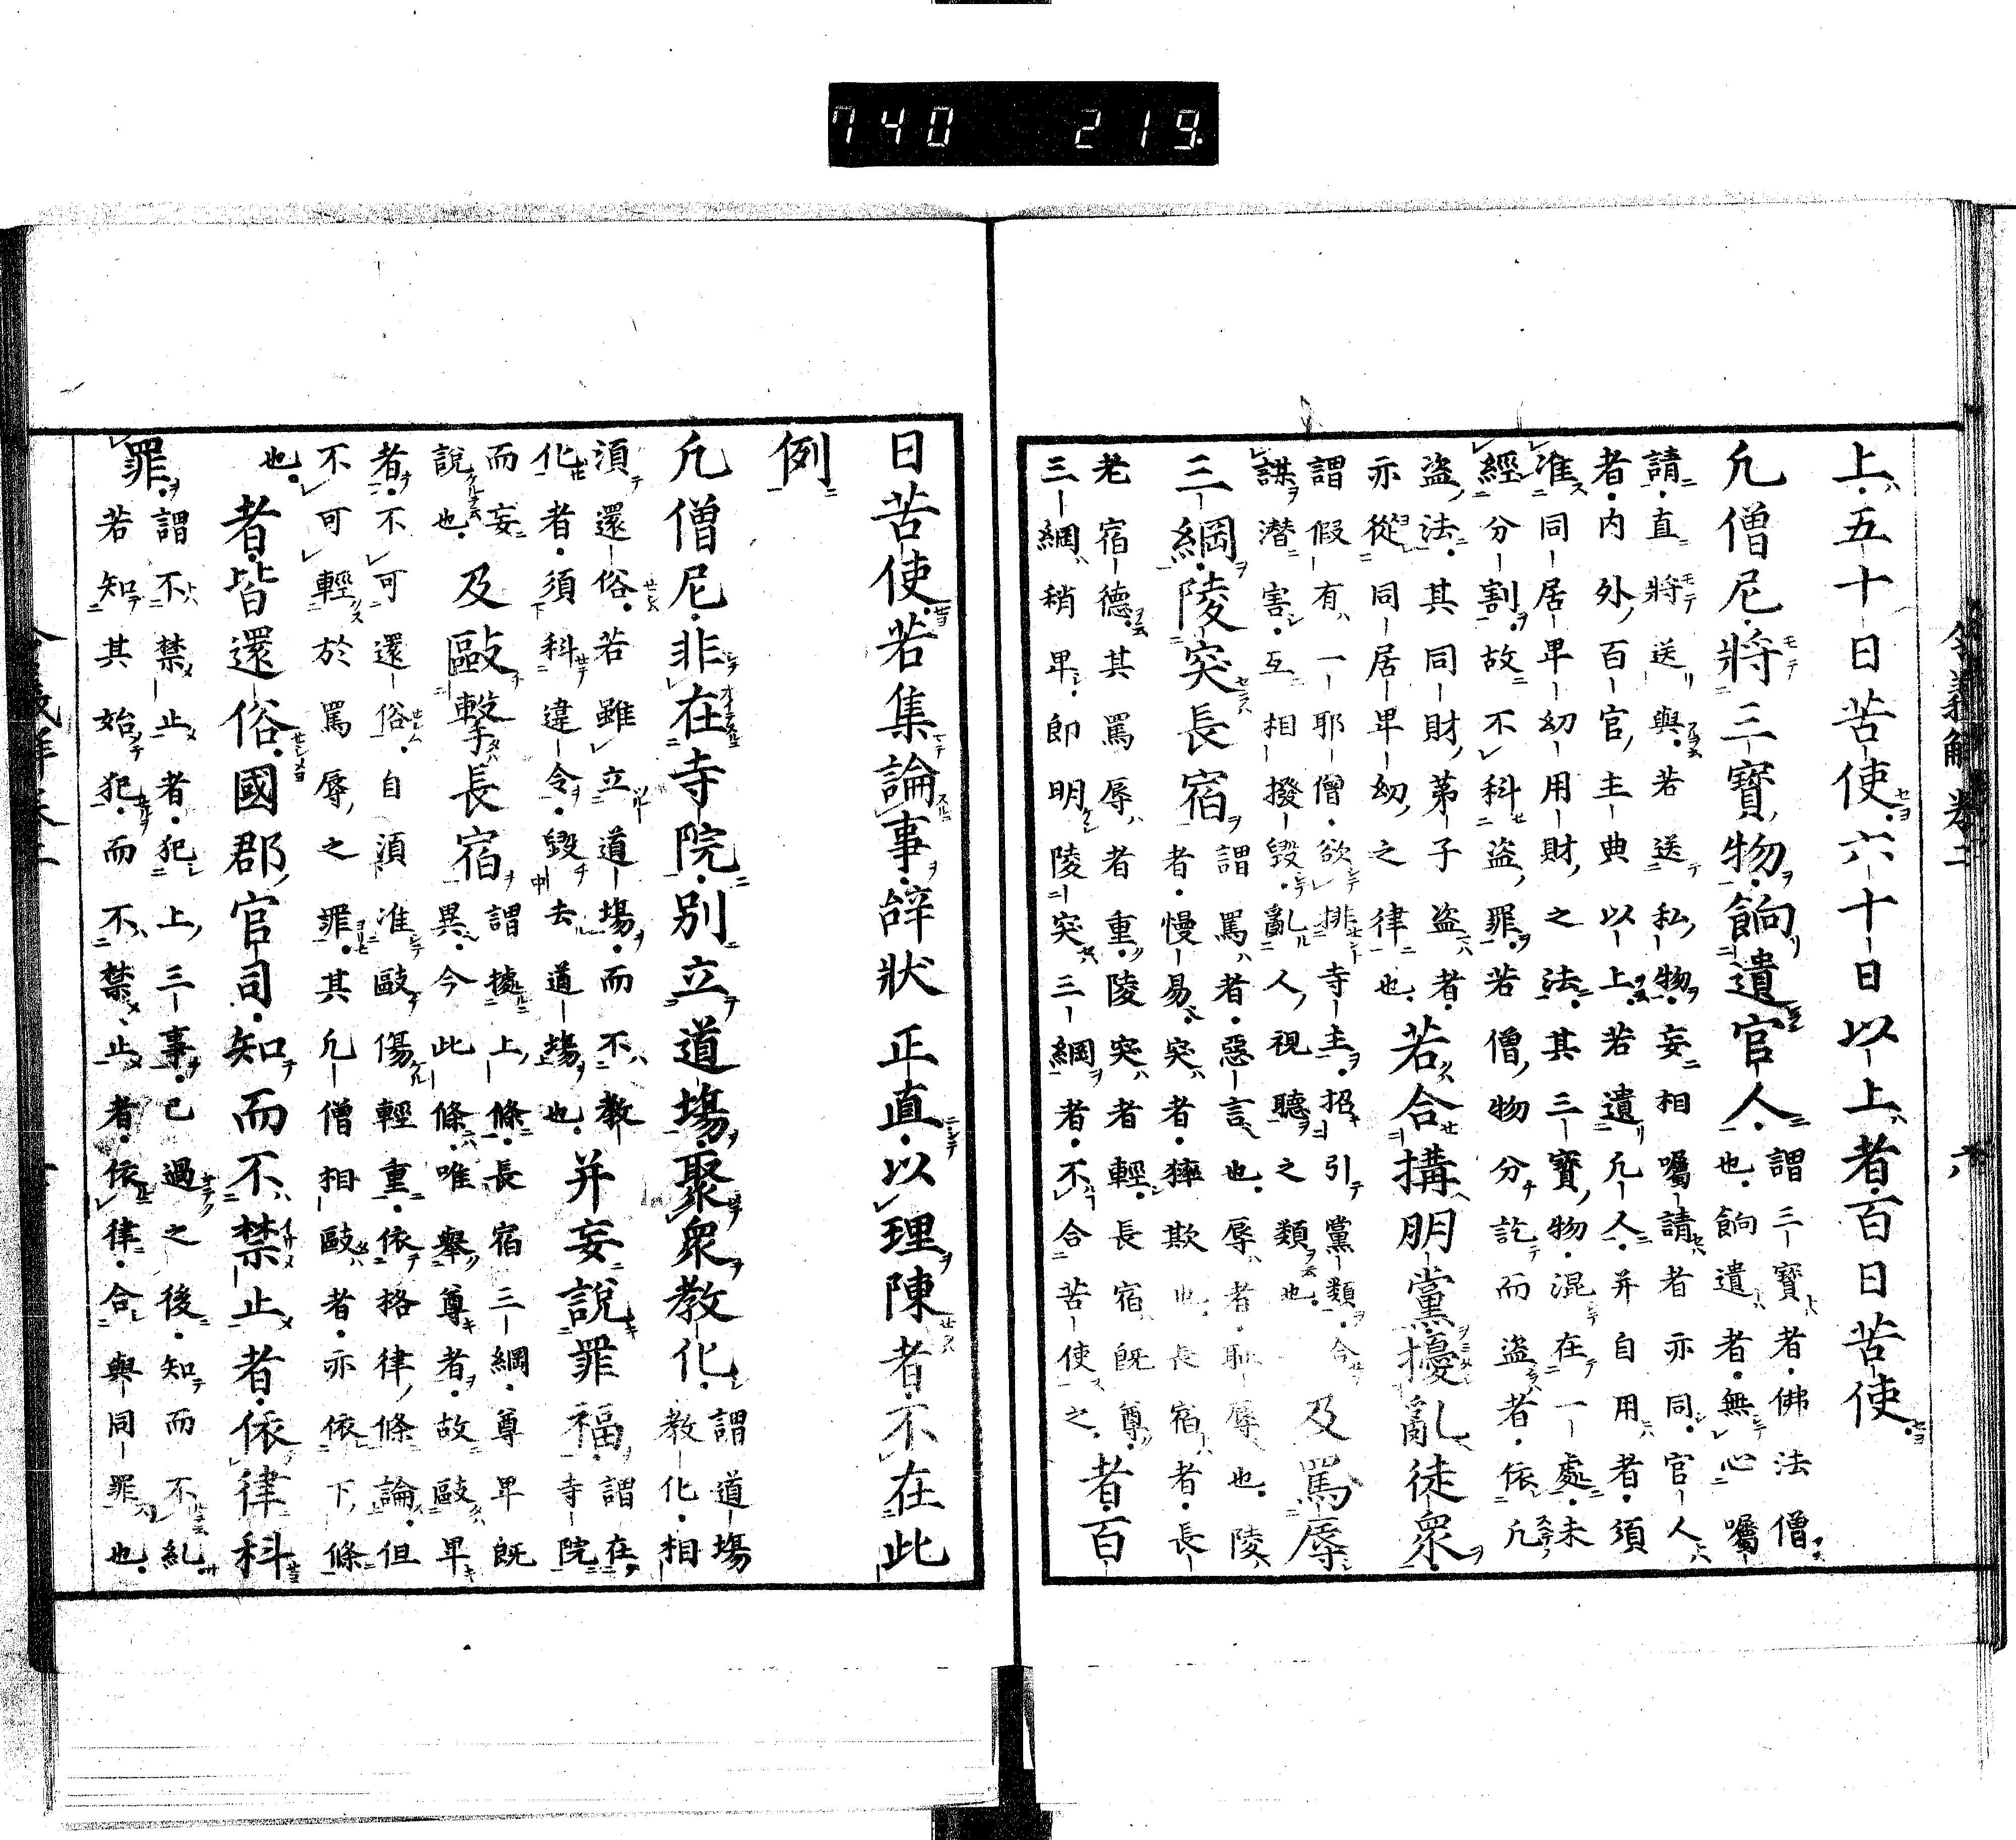 令義解 卷二 六
上五十日苦使六十日以上者百日苦使
凡僧尼將三寶物餉遺官人
謂三寶者佛法僧
也餉遺者無心囑
請直將送與若送私物妄相囑請者亦同官人
者內外百官主典以上若遺凡人并自用者須
准同居卑幼用財之法其三寶物混在一處未
經分割故不科盜罪若僧物分訖而盜者依凡
盜法其同財弟子盜者
亦從同居卑幼之律也
若合搆朋黨擾亂徒衆
謂假有一耶僧欲排寺主招引黨類令
謀潛害互相撥毀亂人視聽之類也
及罵辱
三綱陵突長宿
謂罵者惡言也辱者恥辱也陵
者慢易突者欺也長宿者長
老宿德其罵辱者重陵突者輕長宿旣尊
三綱稍卑即明陵突三綱者不合苦使之
者百
日苦使若集論事辭狀正直以理陳者不在此
例
凡僧尼非在寺院別立道場聚衆教化
謂道場
教化相
須還俗若雖立道場而不教
化者須科違令毀去道場也
并妄說罪福
謂在
寺院
而妄
說也
及毆擊長宿
謂據上條長宿三綱尊卑旣
異今此條唯舉尊者故毆卑
者不可還俗自須准毆傷輕重依格律條論但
不可輕於罵辱之罪其凡僧相毆者亦依下條
也
者皆還俗國郡官司知而不禁止者依律科
罪
謂不禁止者犯上三事已過之後知而不糺
若知其始犯而不禁止者依律合與同罪也
740 219